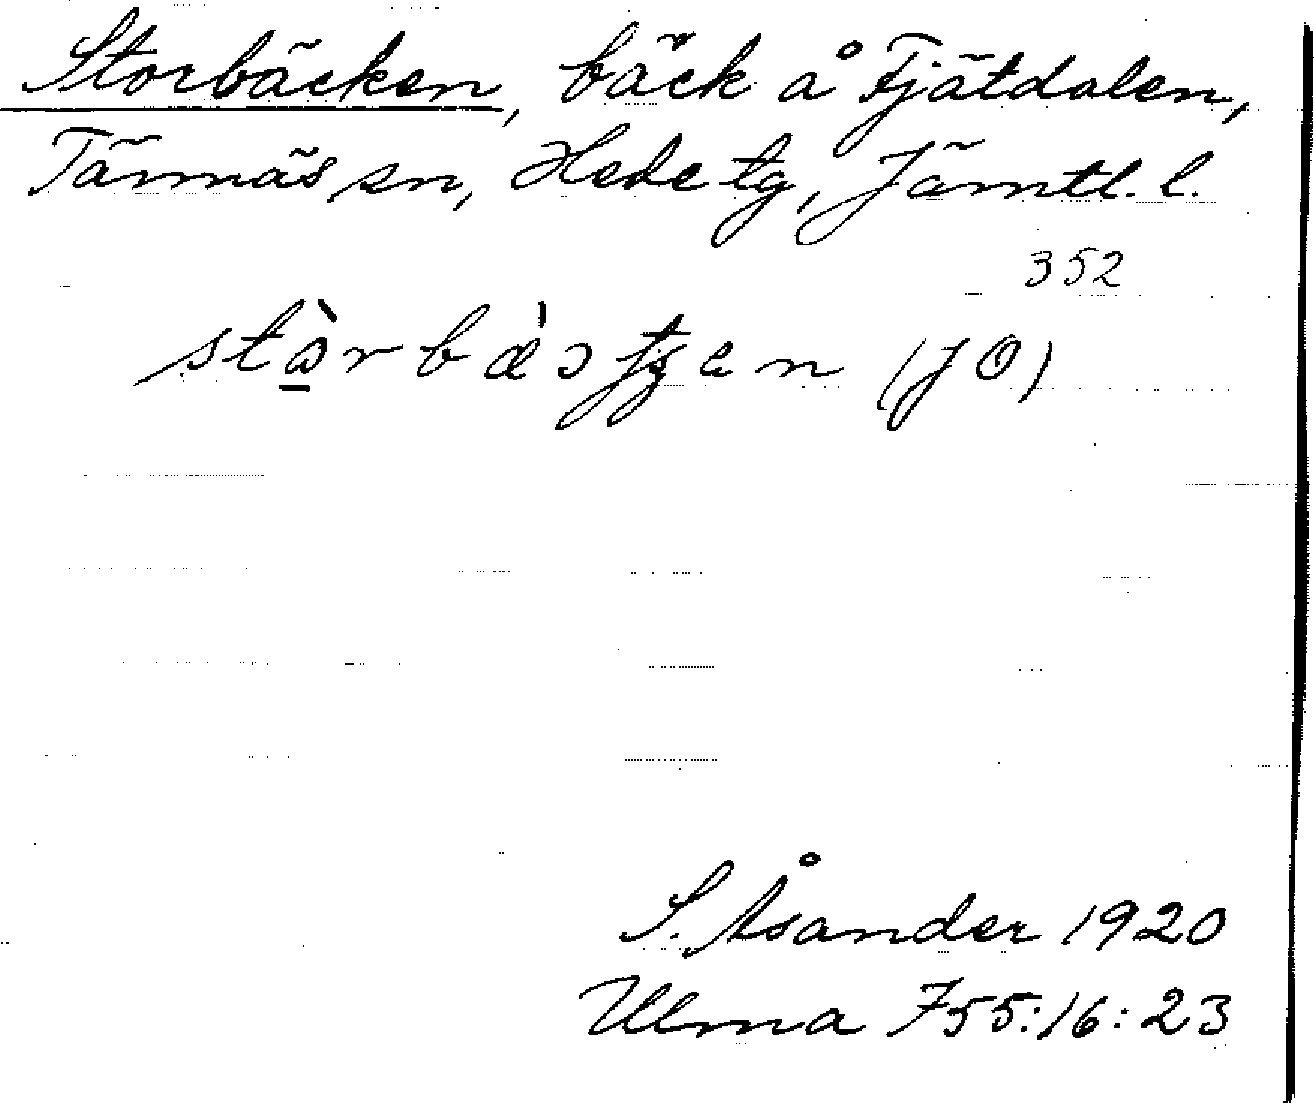 Storbäcken, bäck å Fjätdalen,
Tännäs sn, Hede tg, Jämtl. l.
352
(JO)
S. Åsander 1920
Ulma 755:16:23